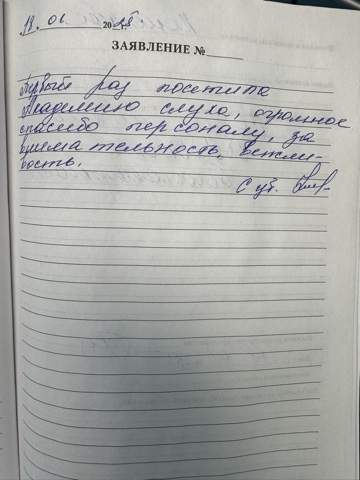 18.06. 2025 г.
ЗАЯВЛЕНИЕ №
Первый раз посетила
Академию слуха, огромное
спасибо персоналу, за
внимательность, вежли-
вость.
С ув.